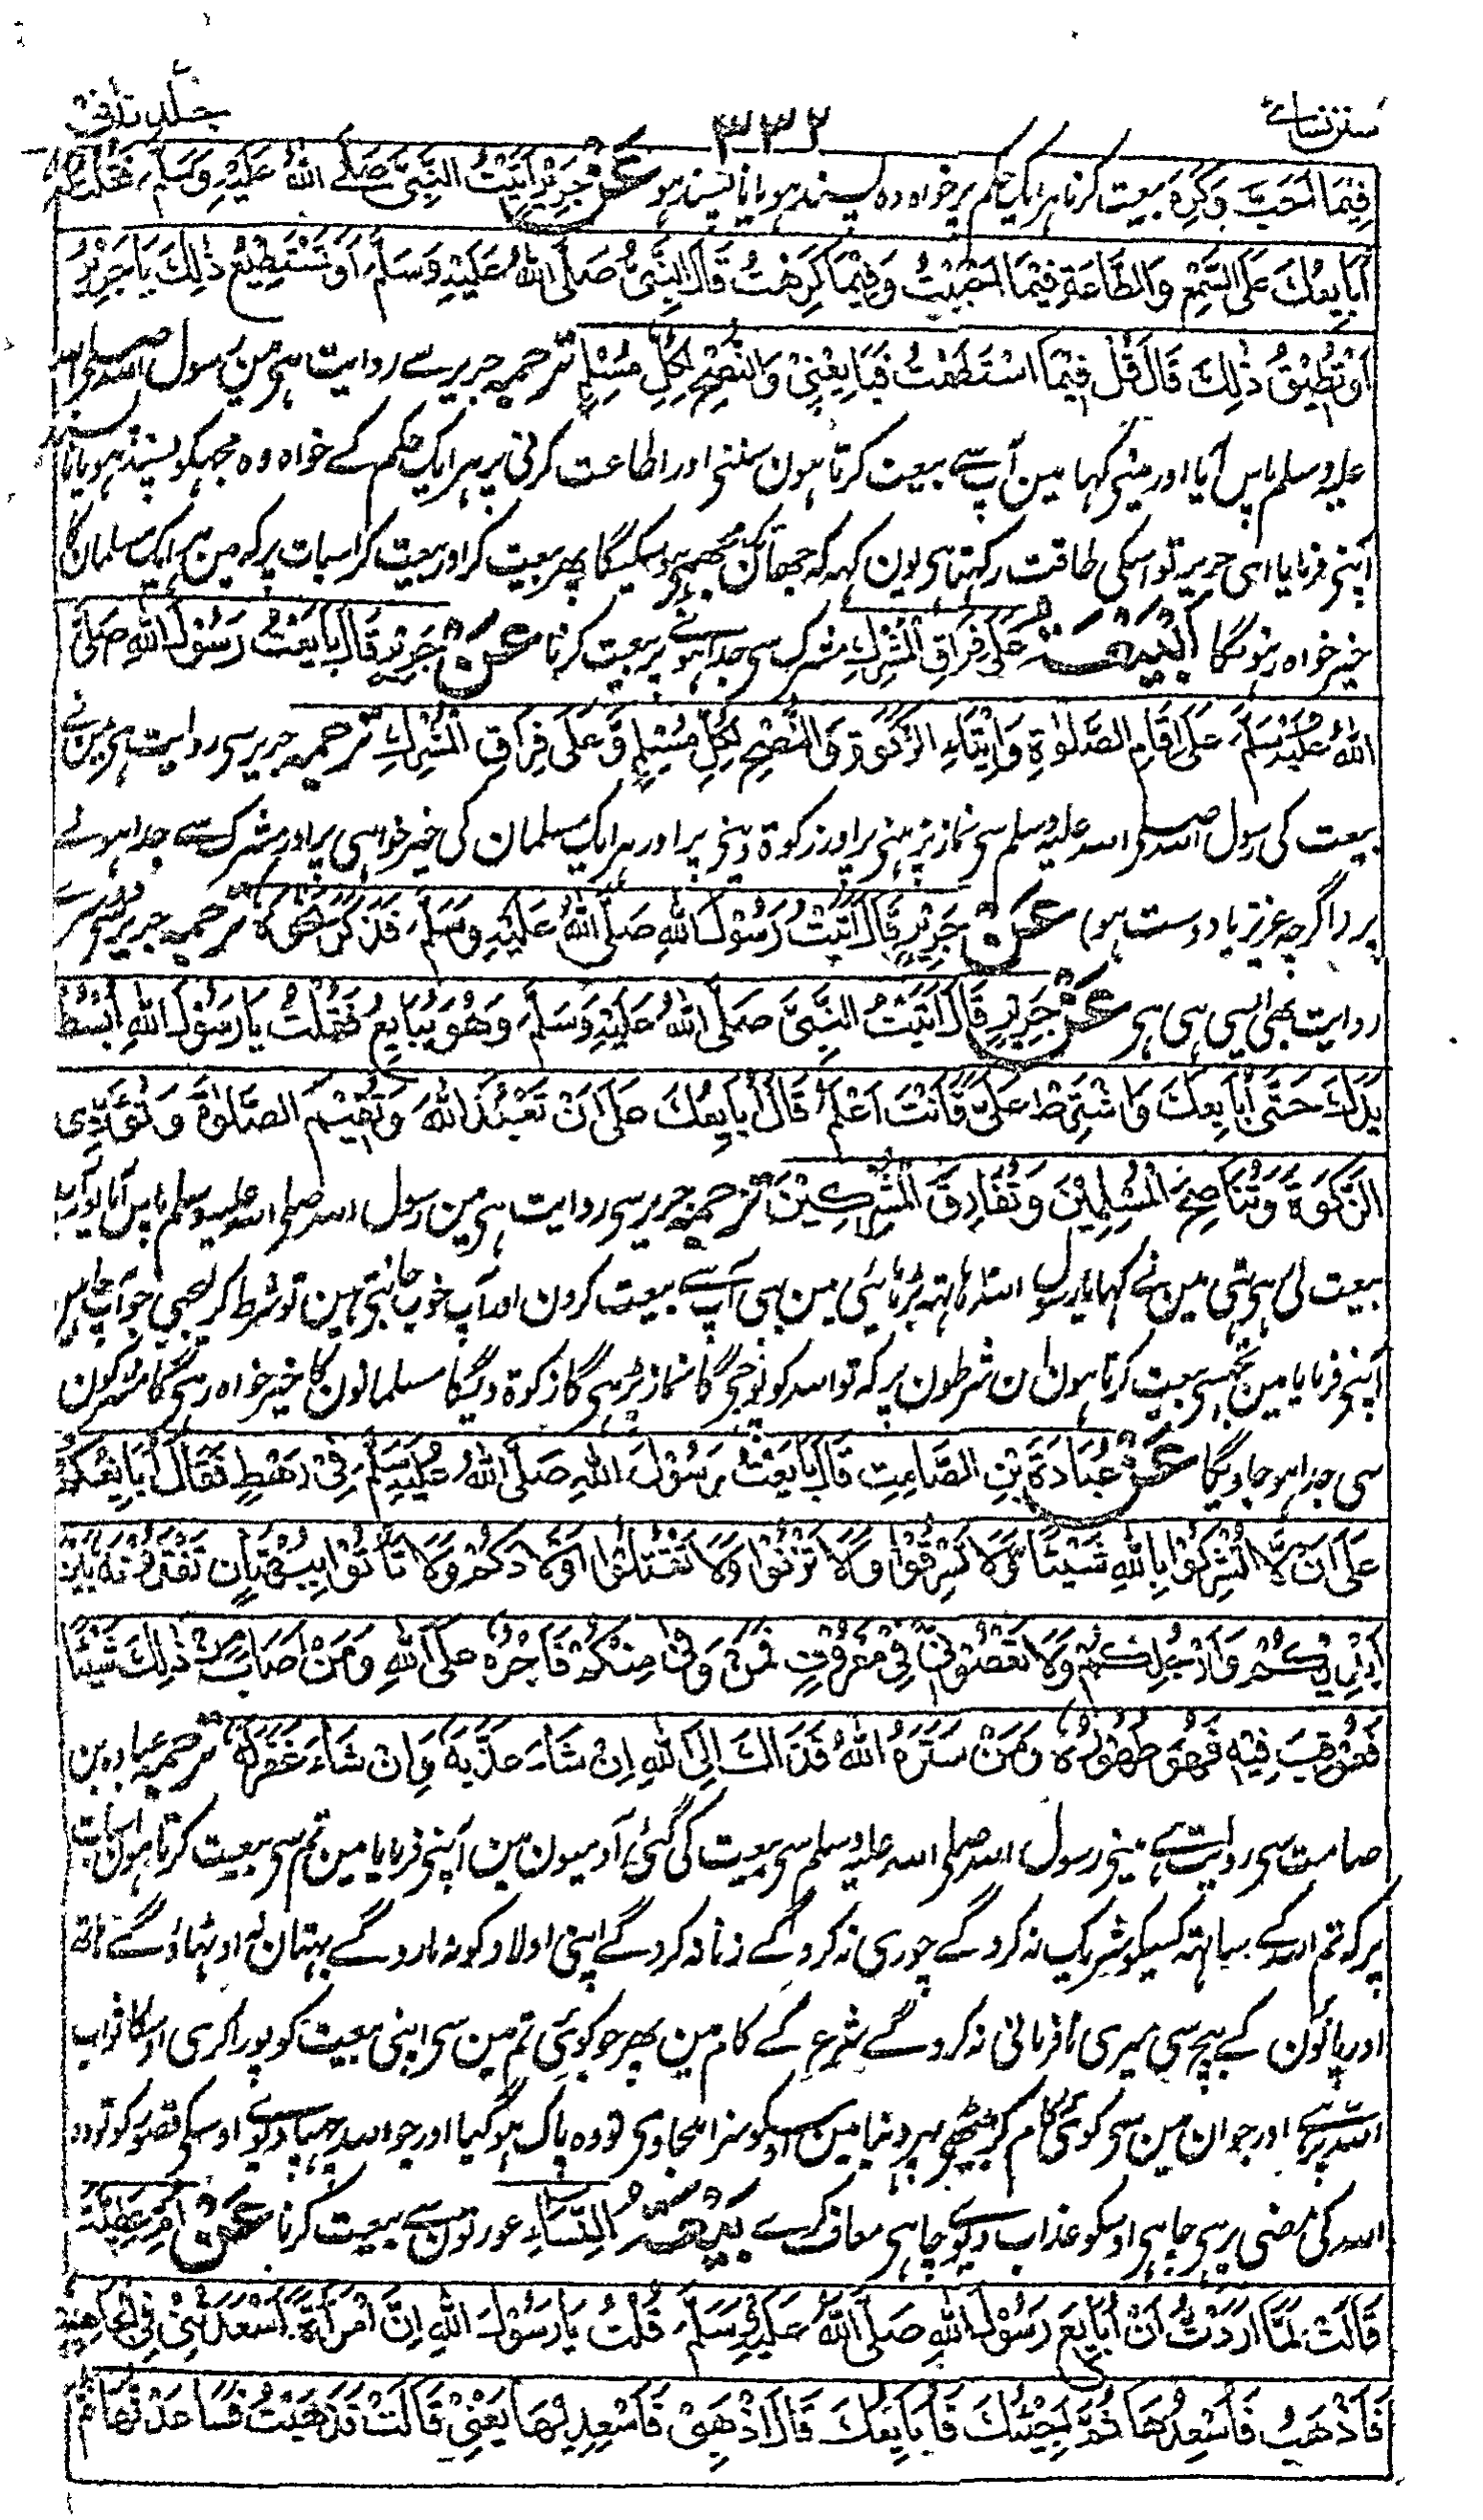 سنن نسائے ۳۳۲ جلد ثانی
فِيْمَا اَحَبَّ وَكَرِهَ بیعت کرنا ہر ایک حکم پر خواہ وہ پسند ہو یا ناپسند ہو عَنْ جَرِيْرٍ اَتَيْتُ النَّبِيَّ صَلَّے اللهُ عَلَيْهِ وَسَلَّمَ فَقُلْتُ لَهُ
اُبَايِعُكَ عَلَى السَّمْعِ وَالطَّاعَةِ فِيْمَا اَحْبَبْتُ وَفِيْمَا كَرِهْتُ قَالَ النَّبِيُّ صَلَّى اللهُ عَلَيْهِ وَسَلَّمَ اَوَ تَسْتَطِيْعُ ذٰلِكَ يَا جَرِيْرُ
اَوَ تُطِيْقُ ذٰلِكَ قَالَ قُلْ فِيْمَا اسْتَطَعْتُ فَبَايَعَنِيْ وَالنُّصْحِ لِكُلِّ مُسْلِمٍ ترجمہ جریر سے روایت ہی مین رسول اللہ صلی اللہ
علیہ وسلم پاس آیا اور مینی کہا مین آپ سے بیعت کرتا ہون سننی اور اطاعت کرنی پر ہر ایک حکم کے خواہ وہ مجہکو پسند ہو یا ناپسند
آپنی فرمایا ای جریر تو اسکی طاقت رکہتا ہی یون کہہ کہ جہانتک مجھسے ہو سکیگا پھر بیعت کر اور بیعت کر اسبات پر کہ مین ہر ایک مسلمان کا
خیر خواہ رہونگا اَلْبَيْعَةُ عَلٰى فِرَاقِ الْمُشْرِكِ مشرک سی جدا ہونے پر بیعت کرنا عَنْ جَرِيْرٍ قَالَ بَايَعْتُ رَسُوْلَ اللهِ صَلَّى
اللهُ عَلَيْهِ وَسَلَّمَ عَلٰى اِقَامِ الصَّلٰوةِ وَاِيْتَاءِ الزَّكٰوةِ وَالنُّصْحِ لِكُلِّ مُسْلِمٍ وَّعَلٰى فِرَاقِ الْمُشْرِكِ ترجمہ جریر سی روایت ہی مین نے
بیعت کی رسول اللہ صلی اللہ علیہ وسلم سی نماز پڑہنی پر اور زکوۃ دینی پر اور ہر ایک مسلمان کی خیر خواہی پر اور مشرک سے جدا ہونے
پر (اگرچہ عزیز یا دوست ہو) عَنْ جَرِيْرٍ قَالَ اَتَيْتُ رَسُوْلَ اللهِ صَلَّى اللهُ عَلَيْهِ وَسَلَّمَ فَذَكَرَ نَحْوَهُ ترجمہ جریر سی دوسرے
روایت بھی ایسی ہی ہی عَنْ جَرِيْرٍ قَالَ اَتَيْتُ النَّبِيَّ صَلَّى اللهُ عَلَيْهِ وَسَلَّمَ وَهُوَ يُبَايِعُ فَقُلْتُ يَا رَسُوْلَ اللهِ ابْسُطْ
يَدَكَ حَتّٰى اُبَايِعَكَ وَاشْتَرِطْ عَلَيَّ فَاَنْتَ اَعْلَمُ قَالَ اُبَايِعُكَ عَلٰى اَنْ تَعْبُدَ اللهَ وَتُقِيْمَ الصَّلٰوةَ وَتُؤَدِّيَ
الزَّكٰوةَ وَتُنَاصِحَ الْمُسْلِمِيْنَ وَتُفَارِقَ الْمُشْرِكِيْنَ ترجمہ جریر سی روایت ہی مین رسول اللہ صلی اللہ علیہ وسلم پاس آیا اور آپ
بیعت لی رہی تھی مین نے کہا یا رسول اللہ ہاتہ بڑہائیی مین بہی آپ سے بیعت کرون اور آپ خوب جانتی ہین تو شرط کر لیجیی جو آپ چاہین
آپنی فرمایا مین تجہسی بیعت کرتا ہون ان شرطون پر کہ تو اللہ کو پوجی گا نماز پڑہی گا زکوۃ دیگا مسلمانون کا خیر خواہ رہی گا مشرکون
سی جدا ہو جاویگا عَنْ عُبَادَةَ بْنِ الصَّامِتِ قَالَ بَايَعْتُ رَسُوْلَ اللهِ صَلَّى اللهُ عَلَيْهِ وَسَلَّمَ فِيْ رَهْطٍ فَقَالَ اُبَايِعُكُمْ
عَلٰى اَنْ لَّا تُشْرِكُوْا بِاللهِ شَيْئًا وَّلَا تَسْرِقُوْا وَلَا تَزْنُوْا وَلَا تَقْتُلُوْا اَوْلَادَكُمْ وَلَا تَاْتُوْا بِبُهْتَانٍ تَفْتَرُوْنَهُ بَيْنَ
اَيْدِيْكُمْ وَاَرْجُلِكُمْ وَلَا تَعْصُوْنِيْ فِيْ مَعْرُوْفٍ فَمَنْ وَفٰى مِنْكُمْ فَاَجْرُهُ عَلَى اللهِ وَمَنْ اَصَابَ مِنْ ذٰلِكَ شَيْئًا
فَعُوْقِبَ فِيْهِ فَهُوَ طَهُوْرُهُ وَمَنْ سَتَرَهُ اللهُ فَذَاكَ اِلَى اللهِ اِنْ شَاءَ عَذَّبَهُ وَاِنْ شَاءَ غَفَرَ لَهُ ترجمہ عبادہ بن
صامت سی روایت ہے مینی رسول اللہ صلی اللہ علیہ وسلم سی بیعت کی کئی آدمیون مین آپنی فرمایا مین تم سی بیعت کرتا ہون اسبات
پر کہ تم اللہ کے ساہتہ کسیکو شریک نہ کرو گے چوری نہ کرو گے زنا نہ کرو گے اپنی اولاد کو نہ مارو گے بہتان نہ اوٹہاؤ گے ہاتہ
اور پاؤن کے بیچ سی میری نافرمانی نہ کرو گے شرع کے کام مین پھر جو کوئی تم مین سی اپنی بیعت کو پورا کری اوسکا ثواب
اللہ پر ہے اور جو ان مین سی کوئی کام کر بیٹھی پہر دنیا مین اوسکو سزا ملجاوی تو وہ پاک ہو گیا اور جو اللہ چہپا دیوے اوسکی قصور کو تو وہ
اللہ کی مرضی پر ہی چاہی اوسکو عذاب دیوے چاہی معاف کرے بَيْعَةُ النِّسَاءِ عورتون سے بیعت کرنا عَنْ اُمِّ عَطِيَّةَ
قَالَتْ لَمَّا اَرَدْتُ اَنْ اُبَايِعَ رَسُوْلَ اللهِ صَلَّى اللهُ عَلَيْهِ وَسَلَّمَ قُلْتُ يَا رَسُوْلَ اللهِ اِنَّ امْرَاَةً اَسْعَدَتْنِيْ فِي الْجَاهِلِيَّةِ
فَاَذْهَبُ فَاُسْعِدُهَا ثُمَّ اَجِيْئُكَ فَاُبَايِعُكَ قَالَ اذْهَبِيْ فَاَسْعِدِيْهَا يَعْنِيْ قَالَتْ فَذَهَبْتُ فَسَاعَدْتُهَا ثُمَّ